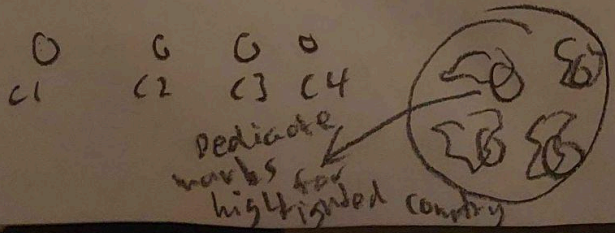 C1 C2 C3 C4
Dedicate
marks for
highlighted country